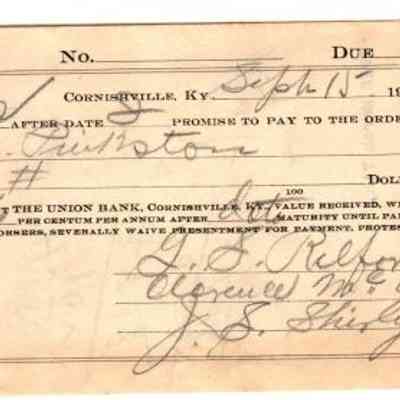 No. DUE
CORNISHVILLE, KY. Sept 15 19
AFTER DATE I PROMISE TO PAY TO THE ORDE
Pinkston
# 100 DOLL
T THE UNION BANK, CORNISHVILLE, KY., VALUE RECEIVED, WI
PER CENTUM PER ANNUM AFTER date MATURITY UNTIL PAI
ORSERS, SEVERALLY WAIVE PRESENTMENT FOR PAYMENT, PROTES
Clarence Mc
J. S.